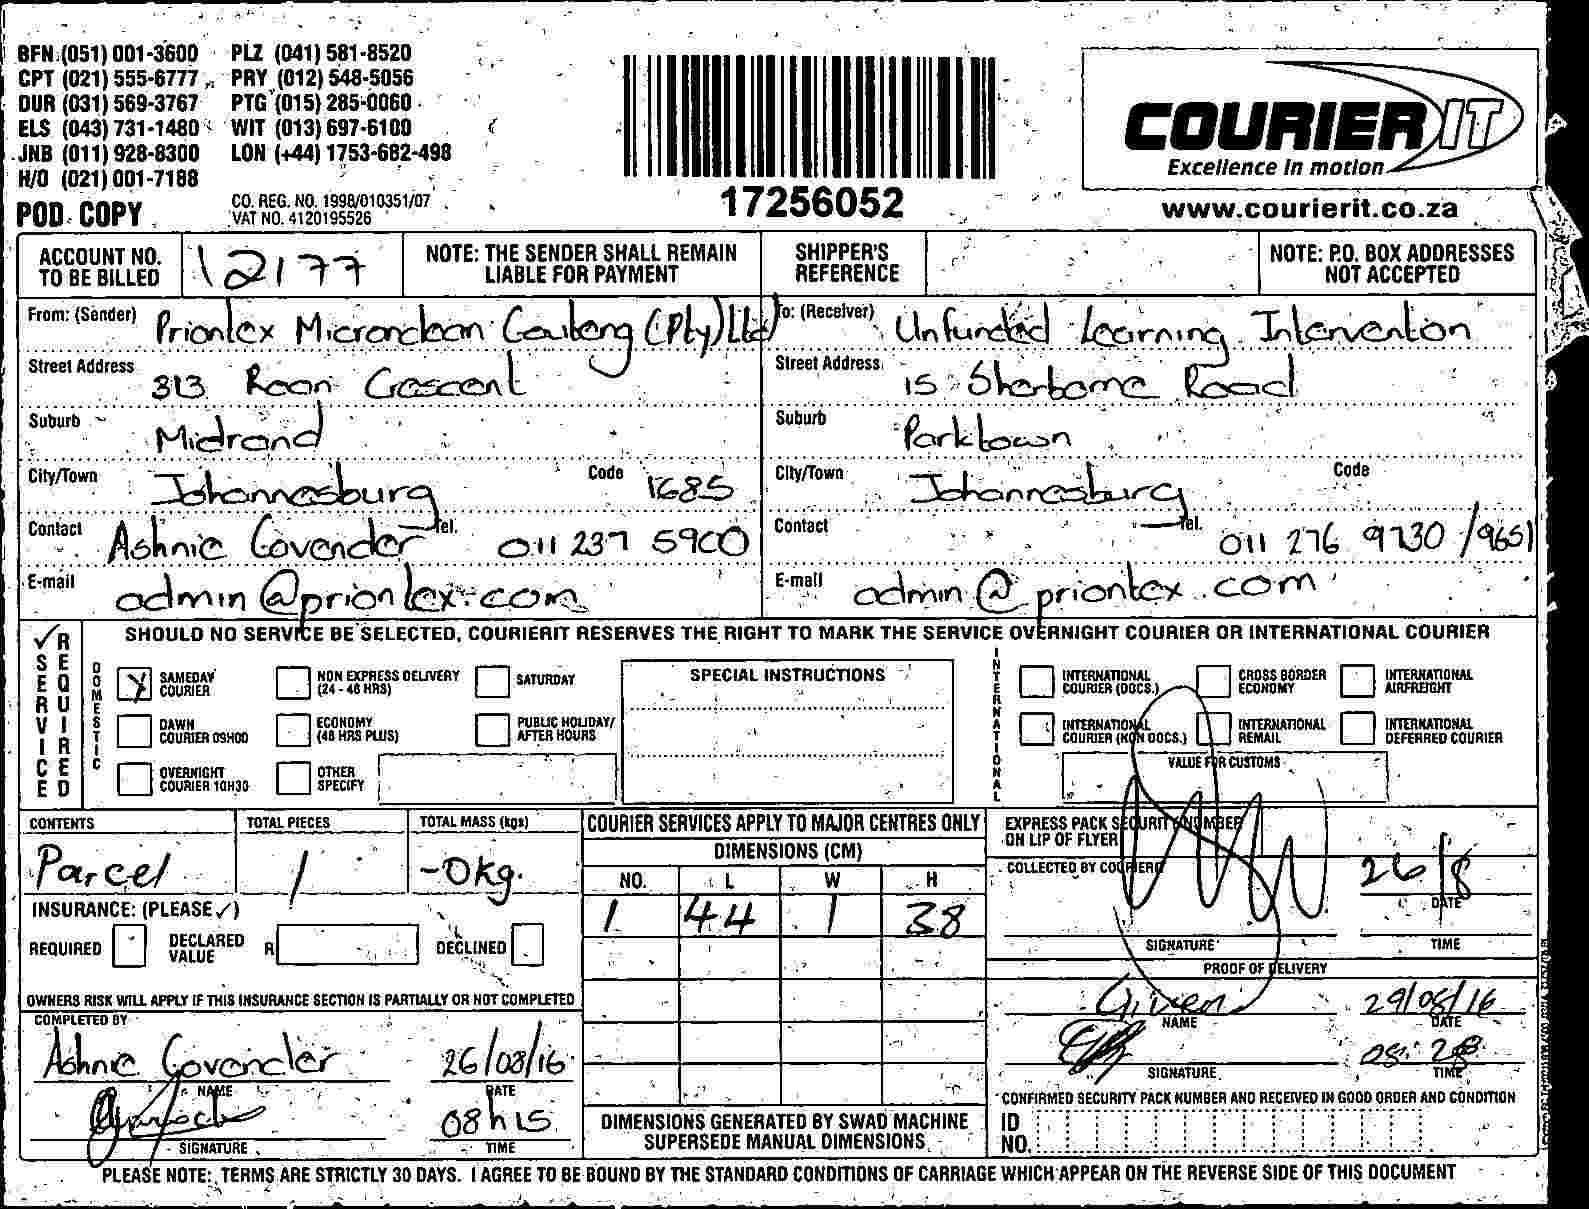 BFN (051) 001-3600 PLZ (041) 581-8520
CPT (021) 555-6777 PRY (012) 548-5056
DUR (031) 569-3767 PTG (015) 285-0060
ELS (043) 731-1480 WIT (013) 697-6100
JNB (011) 928-8300 LON (+44) 1753-682-498
H/O (021) 001-7188
CO. REG. NO. 1998/010351/07
VAT NO. 4120195526
POD COPY
17256052
COURIER IT
Excellence in motion
www.courierit.co.za
ACCOUNT NO. TO BE BILLED 12177
NOTE: THE SENDER SHALL REMAIN LIABLE FOR PAYMENT
SHIPPER'S REFERENCE
NOTE: P.O. BOX ADDRESSES NOT ACCEPTED
From: (Sender) Priontex Micronclean Gauteng (Pty) Ltd
Street Address 313 Roan Crescent
Suburb Midrand
City/Town Johannesburg Code 1685
Contact Ashnie Govender Tel. 011 237 5900
E-mail admin@priontex.com
To: (Receiver) Unfunded Learning Intervention
Street Address 15 Sherborne Road
Suburb Parktown
City/Town Johannesburg Code
Contact Tel. 011 276 9730 /9651
E-mail admin@priontex.com
✓ SERVICE REQUIRED
SHOULD NO SERVICE BE SELECTED, COURIERIT RESERVES THE RIGHT TO MARK THE SERVICE OVERNIGHT COURIER OR INTERNATIONAL COURIER
DOMESTIC
SAMEDAY COURIER
NON EXPRESS DELIVERY (24 - 48 HRS)
SATURDAY
DAWN COURIER 09H00
ECONOMY (48 HRS PLUS)
PUBLIC HOLIDAY/ AFTER HOURS
OVERNIGHT COURIER 10H30
OTHER SPECIFY
SPECIAL INSTRUCTIONS
INTERNATIONAL
INTERNATIONAL COURIER (DOCS.)
CROSS BORDER ECONOMY
INTERNATIONAL AIRFREIGHT
INTERNATIONAL COURIER (NON DOCS.)
INTERNATIONAL REMAIL
INTERNATIONAL DEFERRED COURIER
VALUE FOR CUSTOMS
CONTENTS Parcel
TOTAL PIECES 1
TOTAL MASS (kgs) -0kg.
INSURANCE: (PLEASE ✓)
REQUIRED
DECLARED VALUE R
DECLINED
OWNERS RISK WILL APPLY IF THIS INSURANCE SECTION IS PARTIALLY OR NOT COMPLETED
COMPLETED BY
Ashnie Govender 26/08/16
NAME DATE
08h15
SIGNATURE TIME
COURIER SERVICES APPLY TO MAJOR CENTRES ONLY
DIMENSIONS (CM)
NO. L W H
1 44 1 38
DIMENSIONS GENERATED BY SWAD MACHINE
SUPERSEDE MANUAL DIMENSIONS
EXPRESS PACK SECURITY NUMBER ON LIP OF FLYER
COLLECTED BY COURIER
26/8
DATE
SIGNATURE TIME
PROOF OF DELIVERY
Given 29/08/16
NAME DATE
08:28
SIGNATURE TIME
CONFIRMED SECURITY PACK NUMBER AND RECEIVED IN GOOD ORDER AND CONDITION
ID NO.
PLEASE NOTE: TERMS ARE STRICTLY 30 DAYS. I AGREE TO BE BOUND BY THE STANDARD CONDITIONS OF CARRIAGE WHICH APPEAR ON THE REVERSE SIDE OF THIS DOCUMENT